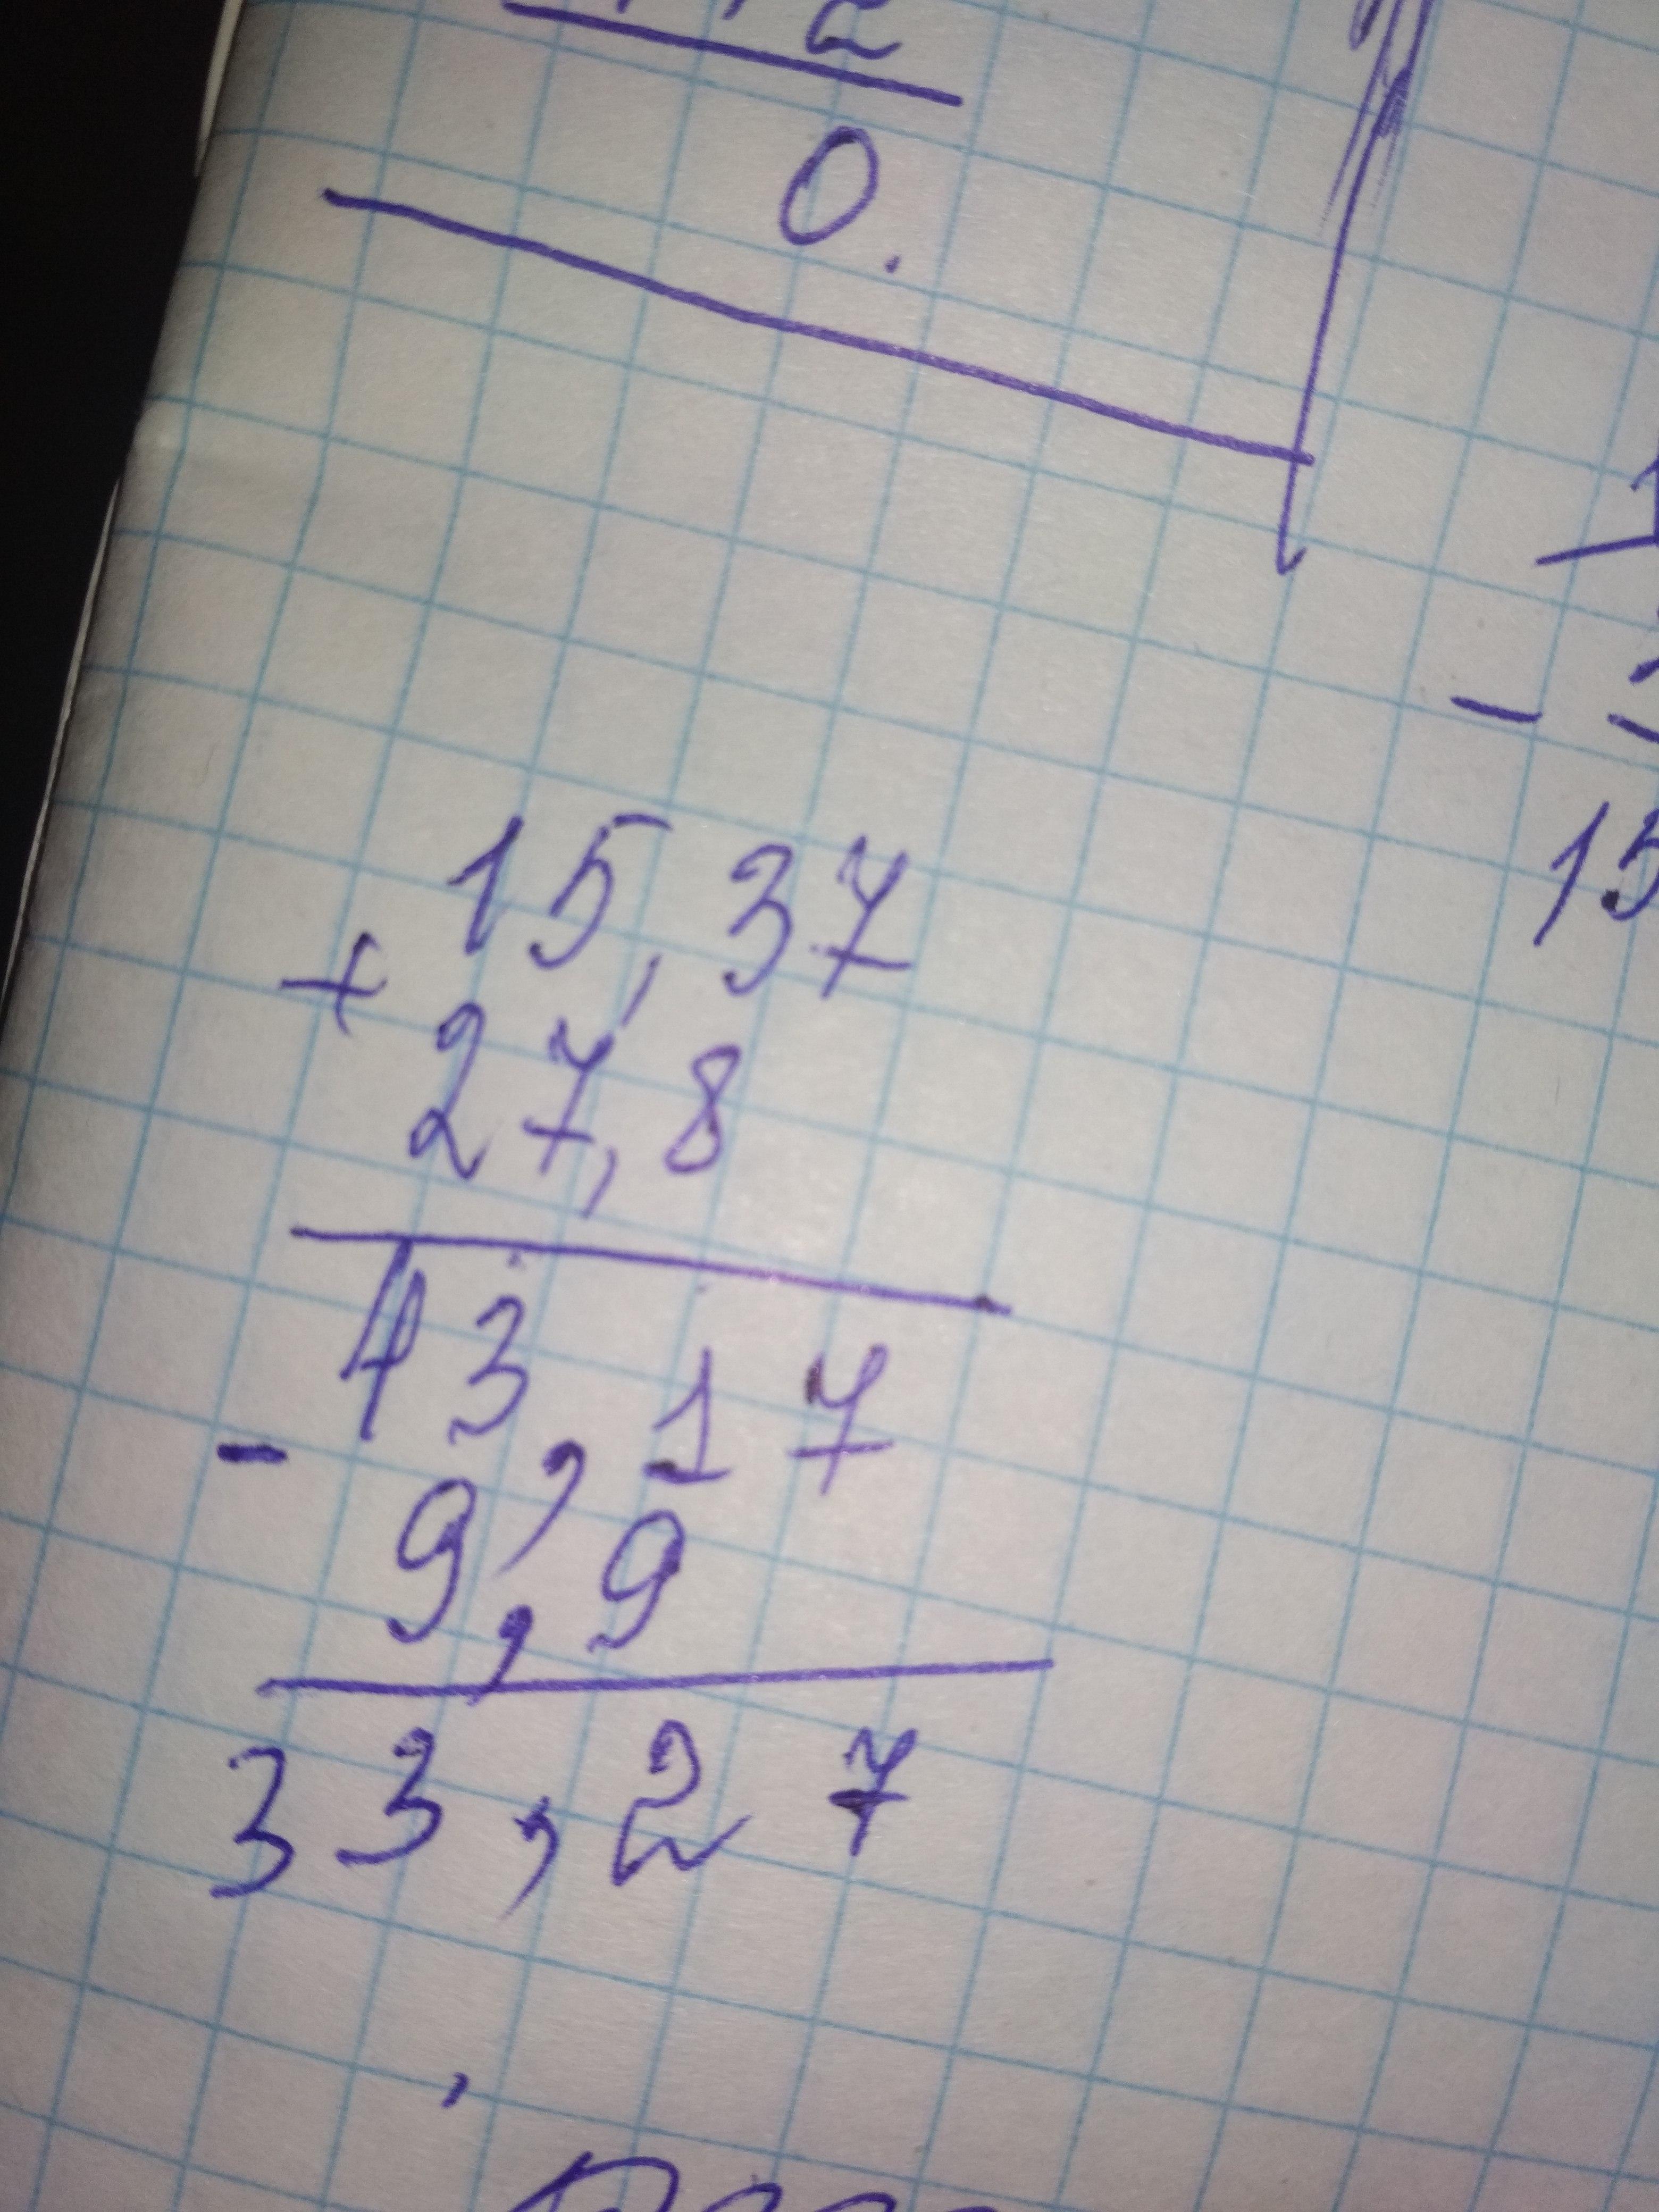 0.
15,37
+
27,8
43,17
-
9,9
33,27
15